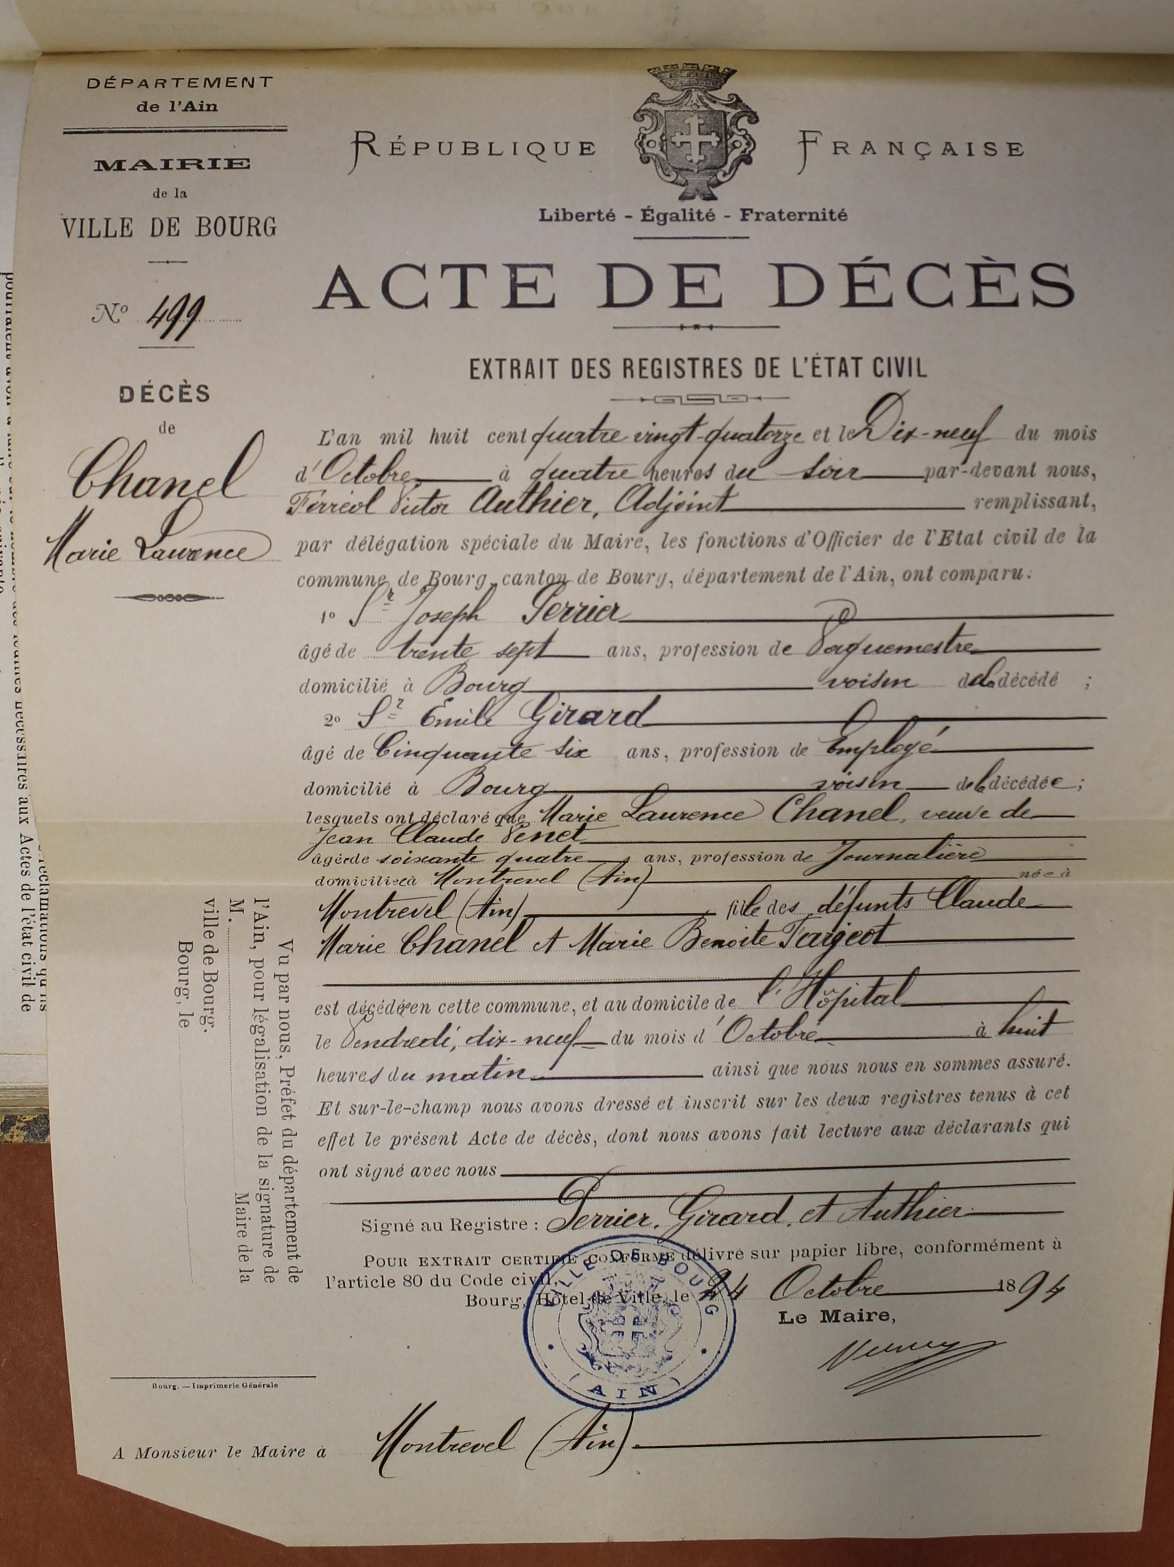 DÉPARTEMENT
de l'Ain
MAIRIE
de la
VILLE DE BOURG
N° 499
DÉCÈS
de
Chanel
Marie Laurence
RÉPUBLIQUE FRANÇAISE
Liberté - Égalité - Fraternité
ACTE DE DÉCÈS
EXTRAIT DES REGISTRES DE L'ÉTAT CIVIL
L'an mil huit cent quatre vingt-quatorze et le Dix-neuf du mois
d'Octobre, à quatre heures du soir par-devant nous,
Férréol Victor Authier, Adjoint remplissant,
par délégation spéciale du Maire, les fonctions d'Officier de l'Etat civil de la
commune de Bourg, canton de Bourg, département de l'Ain, ont comparu:
1° Sr Joseph Perrier
âgé de trente sept ans, profession de Vaguemestre
domicilié à Bourg voisin de la décédé ;
2° Sr Emile Girard
âgé de Cinquante six ans, profession de Employé
domicilié à Bourg voisin de la décédée ;
lesquels ont déclaré que Marie Laurence Chanel, veuve de
Jean Claude Venet
âgée de soixante quatre, ans, profession de Journalière
domiciliée à Montrevel (Ain) née à
Montrevel (Ain) fille des défunts Claude
Marie Chanel et Marie Benoite
est décédée en cette commune, et au domicile de l'Hôpital
le Vendredi, dix-neuf du mois d'Octobre à huit
heures du matin ainsi que nous nous en sommes assuré.
Et sur-le-champ nous avons dressé et inscrit sur les deux registres tenus à cet
effet le présent Acte de décès, dont nous avons fait lecture aux déclarants qui
ont signé avec nous
Signé au Registre : Perrier, Girard, et Authier
POUR EXTRAIT CERTIFIÉ CONFORME délivré sur papier libre, conformément à
l'article 80 du Code civil.
Bourg, Hôtel de Ville, le 24 Octobre 1894
Le Maire,
VILLE DE BOURG
(AIN)
Vu par nous, Préfet du département de
l'Ain, pour légalisation de la signature de
M. Maire de la
ville de Bourg.
Bourg, le
Bourg. — Imprimerie Générale
A Monsieur le Maire à Montrevel (Ain)